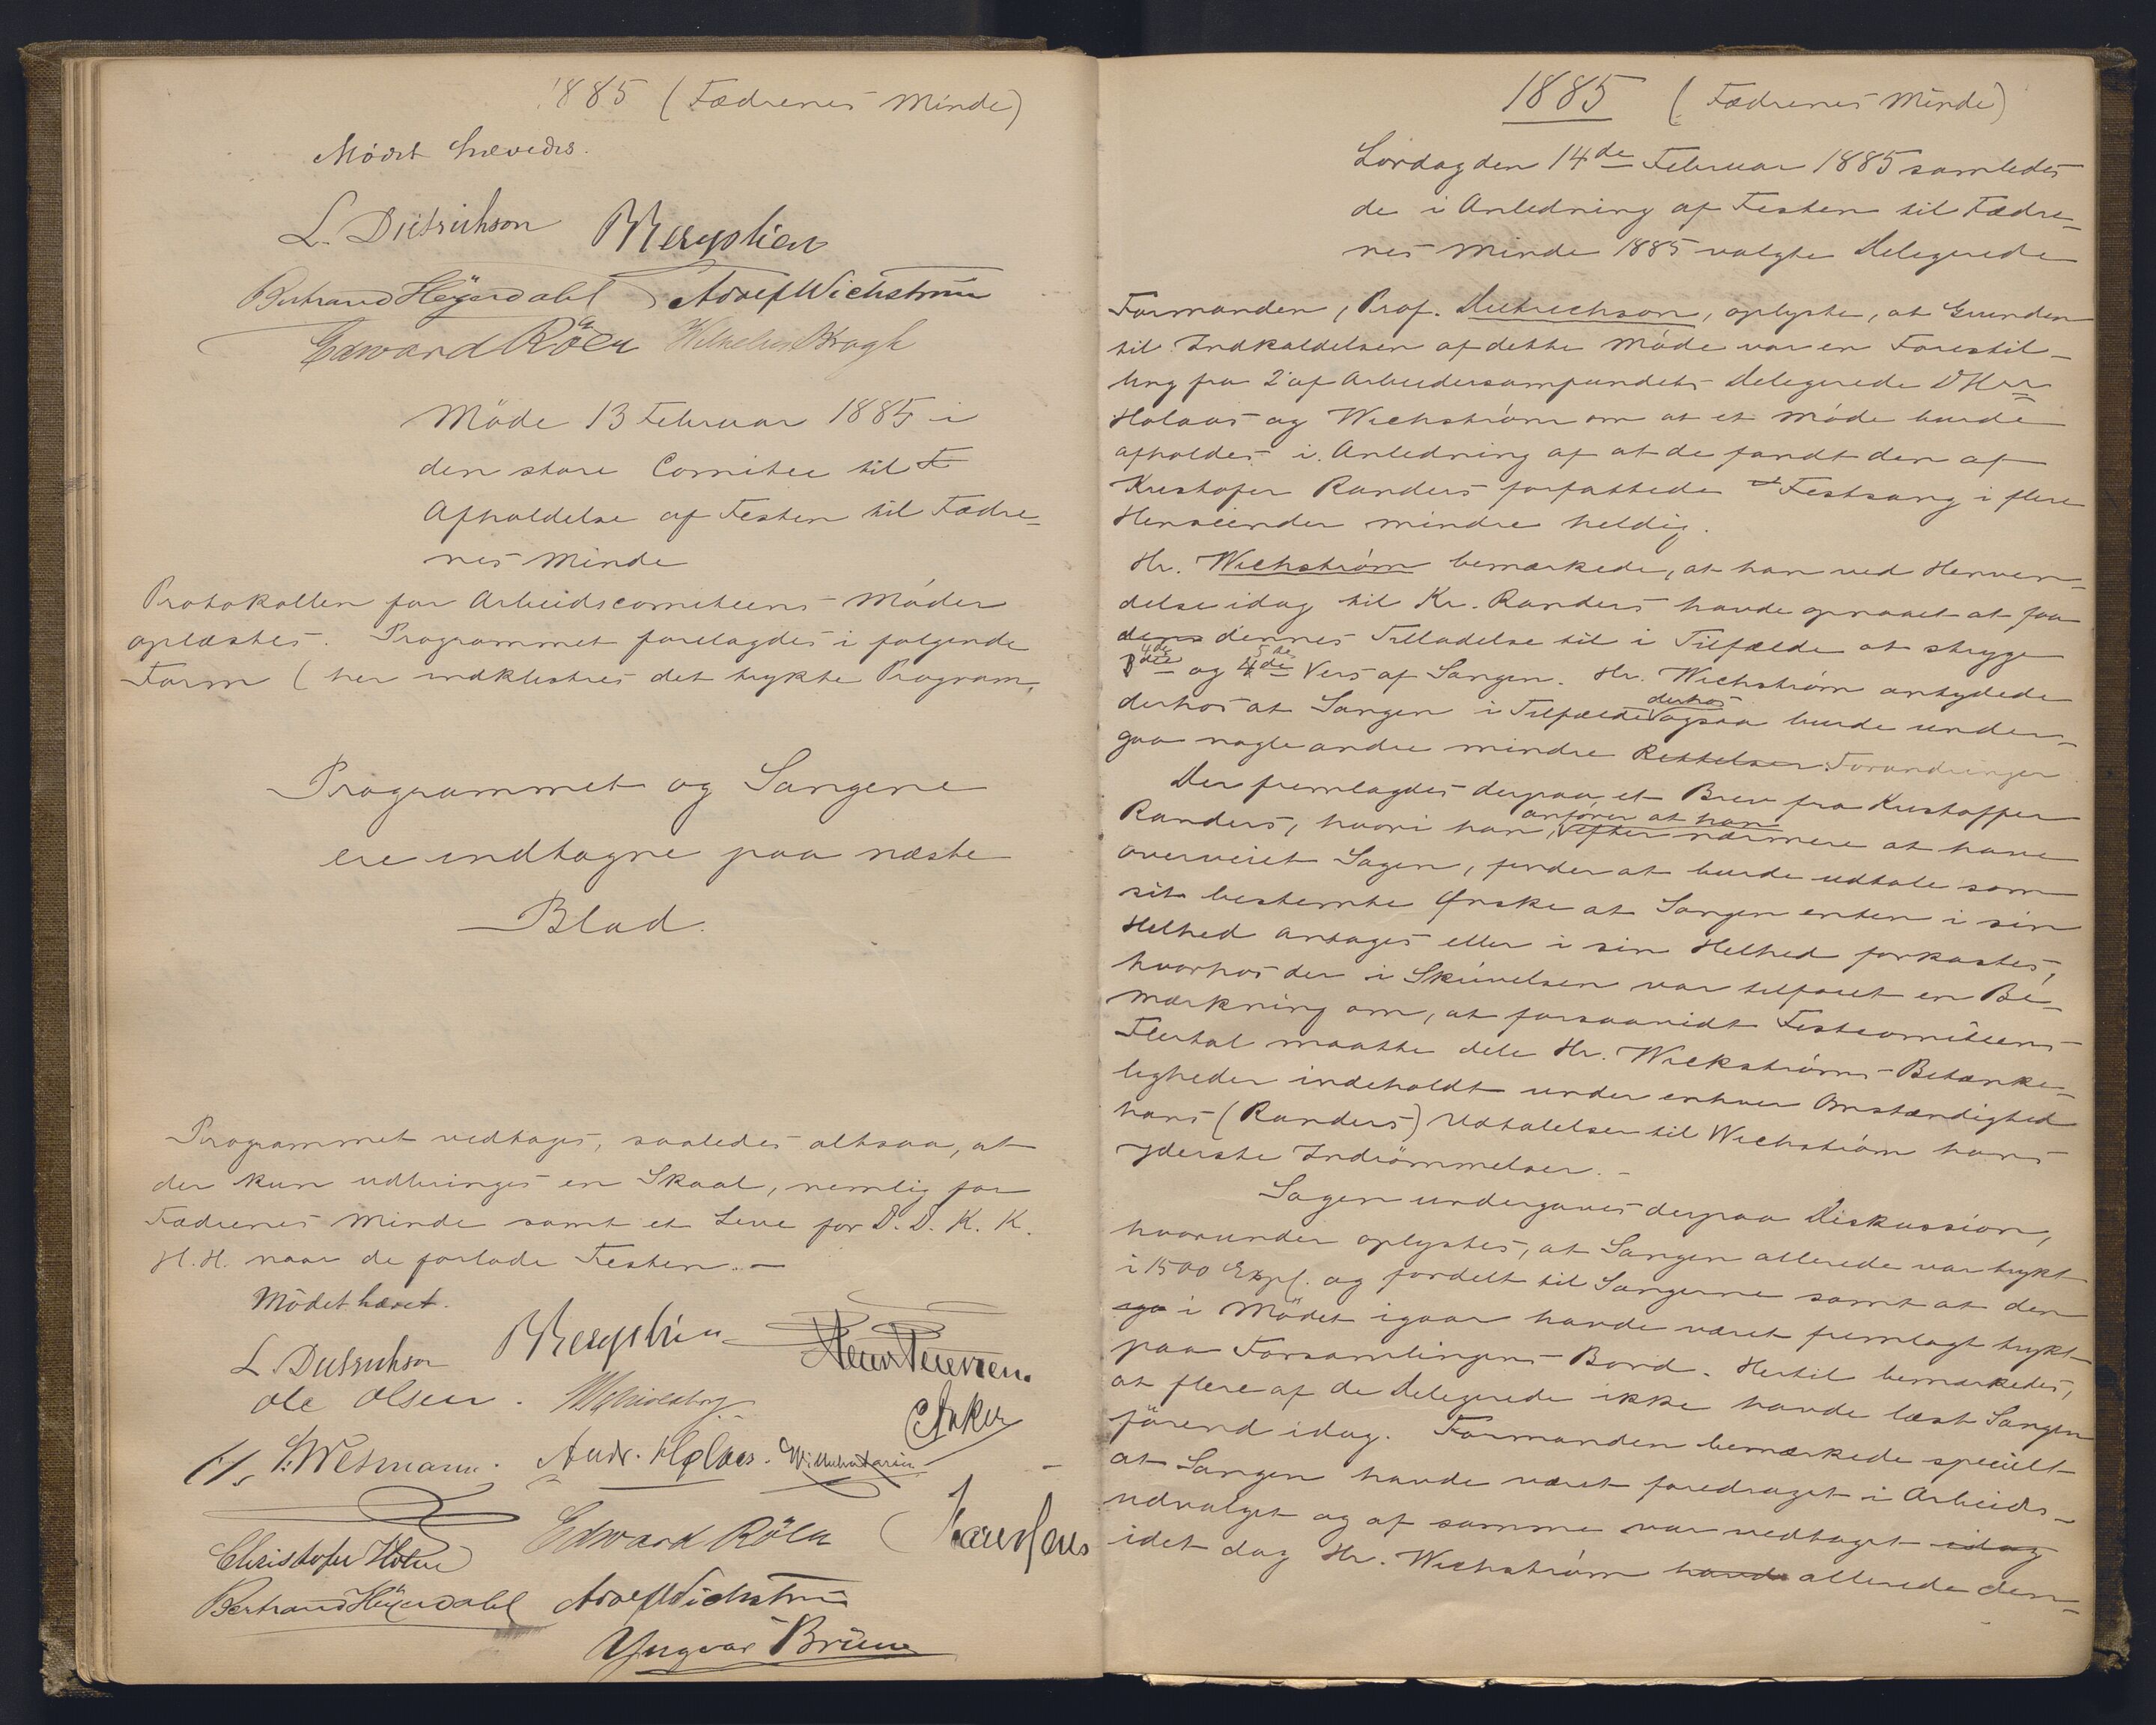 1885 (Fædrenes Minde)
Mödet hævedes.
L. Dietrichson
Bertrand Höyerdahl Adolf Wichstrøm
Edward Röen Wilhelm Krogh
Möde 13 Februar 1885 i
den store Comitee til F
Afholdelse af Festen til Fædre-
nes Minde
Protokollen for Arbeidscomiteens Möder
oplæstes. Programmet forelagdes i følgende
Form (her indklistres det trykte Program,
Programmet og Sangene
ere indtagne paa næste
Blad.
Programmet vedtoges, saaledes altsaa, at
der kun udbringes en Skaal, nemlig for
Fædrenes Minde samt et Leve for D. D. K. K.
H. H. naar de forlade Festen. —
Mödet hævet.
L. Dietrichson
Ole Olsen.
Anker
Andr. Holaas.
Christofer Holm Edward Röen
Bertrand Höyerdahl Adolf Wichstrøm
Yngvar Bruun
1885 (Fædrenes Minde)
Lördag den 14de Februar 1885 samledes
de i Anledning af Festen til Fædre-
nes Minde 1885 valgte Delegerede
Formanden, Prof. Dietrichson, oplyste, at Grunden
til Indkaldelsen af dette Möde var en Forestil-
ling fra 2 af Arbeidersamfundets Delegerede DHrr
Holaas og Wichström om at et Möde burde
afholdes i Anledning af at de fandt den af
Kristofer Randers forfattede Festsang i flere
Henseender mindre heldig.
Hr. Wichström bemærkede, at han ved Henven-
delse idag til Kr. Randers havde opnaaet at faa
dens dennes Tilladelse til i Tilfælde at stryge
4de 5te
3die og 4de Vers af Sangen. Hr. Wichström antydede
derhos
derhos at Sangen i Tilfælde ogsaa burde under-
gaa nogle andre mindre Rettelser. Forandringer
Der fremlagdes derpaa et Brev fra Kristoffer
anförer at han
Randers, hvori han, efter nærmere at have
overveiet Sagen, finder at burde udtale som
sit bestemte Ønske at Sangen enten i sin
Helhed antages eller i sin Helhed forkastes,
hvorhos der i Skrivelsen var tilföiet en Be-
mærkning om, at forsaavidt Festcomiteens
Flertal maatte dele Hr. Wickströms Betænke-
ligheder indeholdt under enhver Omstændighed
hans (Randers) Udtalelser til Wichström hans
yderste Indrömmelser. –
Sagen undergaves derpaa Diskussion,
hvorunder oplystes, at Sangen allerede var trykt
i 1500 Expl. og fordelt til Sangerne samt at den
i Mödet igaar havde været fremlagt trykt
paa Forsamlingens Bord. Hertil bemærkedes,
at flere af de Delegerede ikke havde læst Sangen
förend idag. Formanden bemærkede specielt
at Sangen havde været foredraget i Arbeids-
udvalget og af samme var vedtaget idag
idet dog Hr. Wichström havde allerede den-